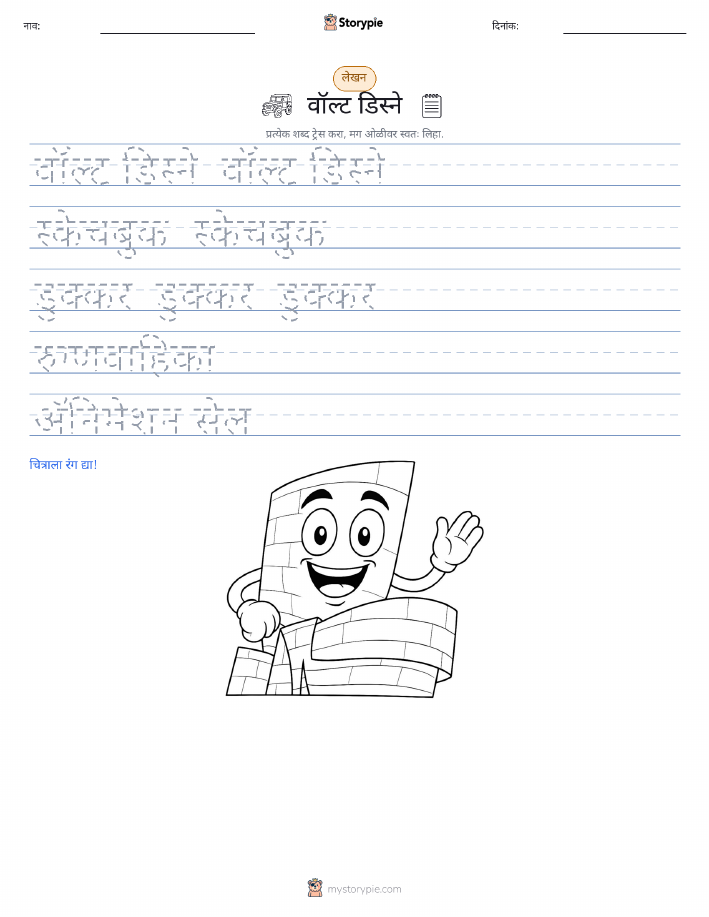 नाव:
Storypie
दिनांक:
लेखन
वॉल्ट डिस्ने
प्रत्येक शब्द ट्रेस करा, मग ओळीवर स्वतः लिहा.
वॉल्ट डिस्ने वॉल्ट डिस्ने
स्केचबुक स्केचबुक
डुक्कर डुक्कर डुक्कर
रुग्णवाहिका
ॲनिमेशन सेल
चित्राला रंग द्या!
mystorypie.com